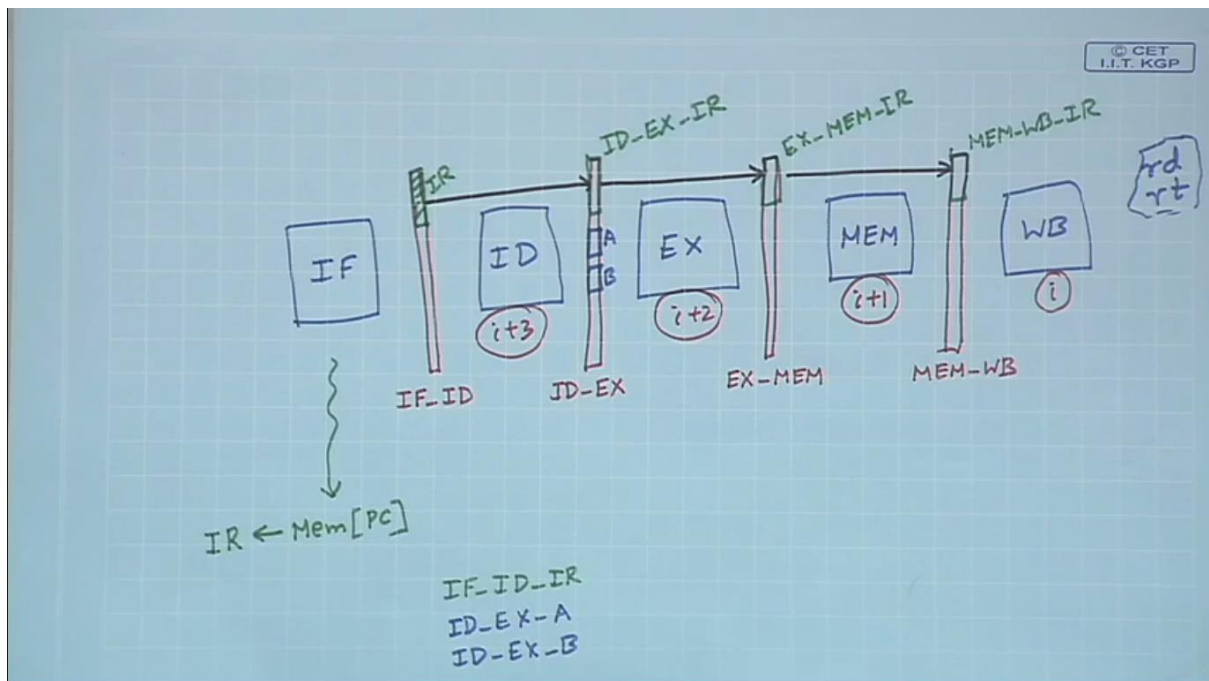 © CET
I.I.T. KGP
ID_EX_IR
EX_MEM_IR
MEM_WB_IR
IR
rd
rt
IF
ID
A
B
EX
MEM
WB
i+3
i+2
i+1
i
IF_ID
ID-EX
EX-MEM
MEM-WB
IR ← Mem[PC]
IF_ID_IR
ID_EX_A
ID_EX_B